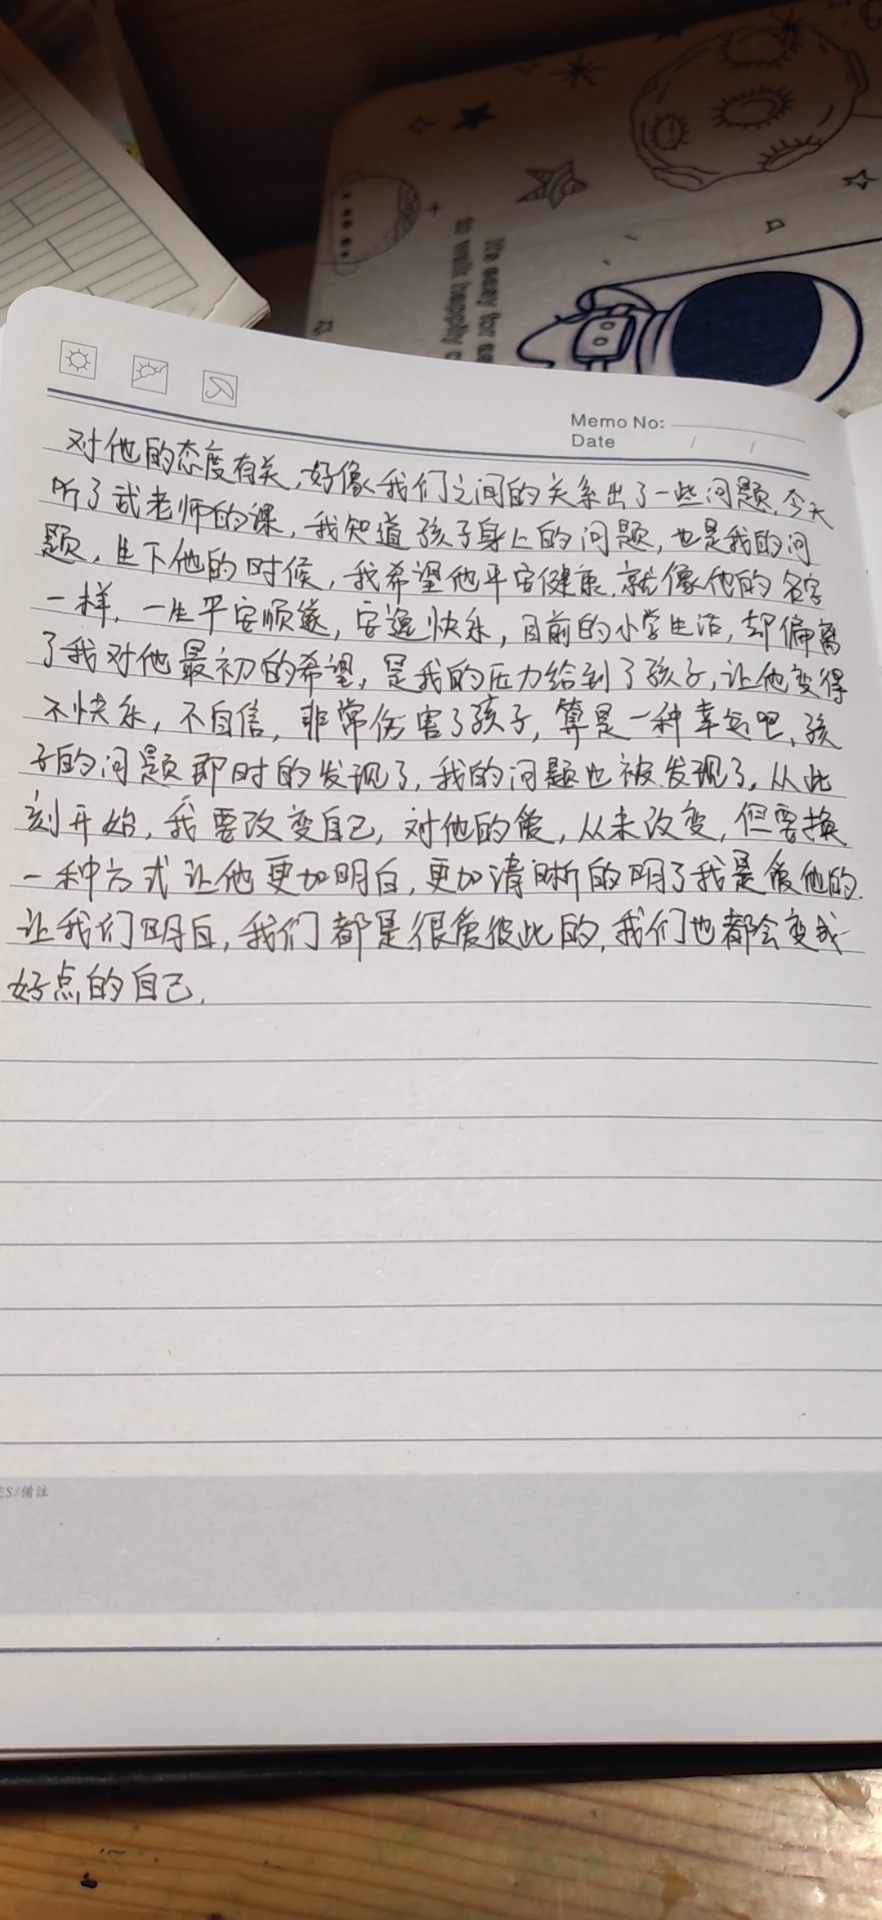 It's easy for se
to walk happily o
Memo No:
Date / /
对他的态度有关,好像我们之间的关系出了一些问题,今天
听了武老师的课,我知道孩子身上的问题,也是我的问
题,生下他的时候,我希望他平安健康,就像他的名字
一样,一生平安顺遂,安逸快乐,目前的小学生活,却偏离
了我对他最初的希望,是我的压力给到了孩子,让他变得
不快乐,不自信,非常伤害了孩子,算是一种幸运吧,孩
子的问题即时的发现了,我的问题也被发现了,从此
刻开始,我要改变自己,对他的爱,从未改变,但要换
一种方式让他更加明白,更加清晰的明了我是爱他的.
让我们明白,我们都是很爱彼此的,我们也都会变成
好点的自己,
ES/备注